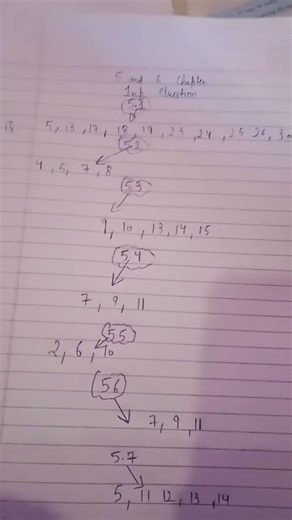 5 and 6 Chapter
Imp Question
5.1
5, 13, 17, 18, 19, 23, 24, 25 26, 30
5.2
4, 5, 7, 8
5.3
9, 10, 13, 14, 15
5.4
7, 9, 11
5.5
2, 6, 10
5.6
7, 9, 11
5.7
5, 11 12, 13, 14